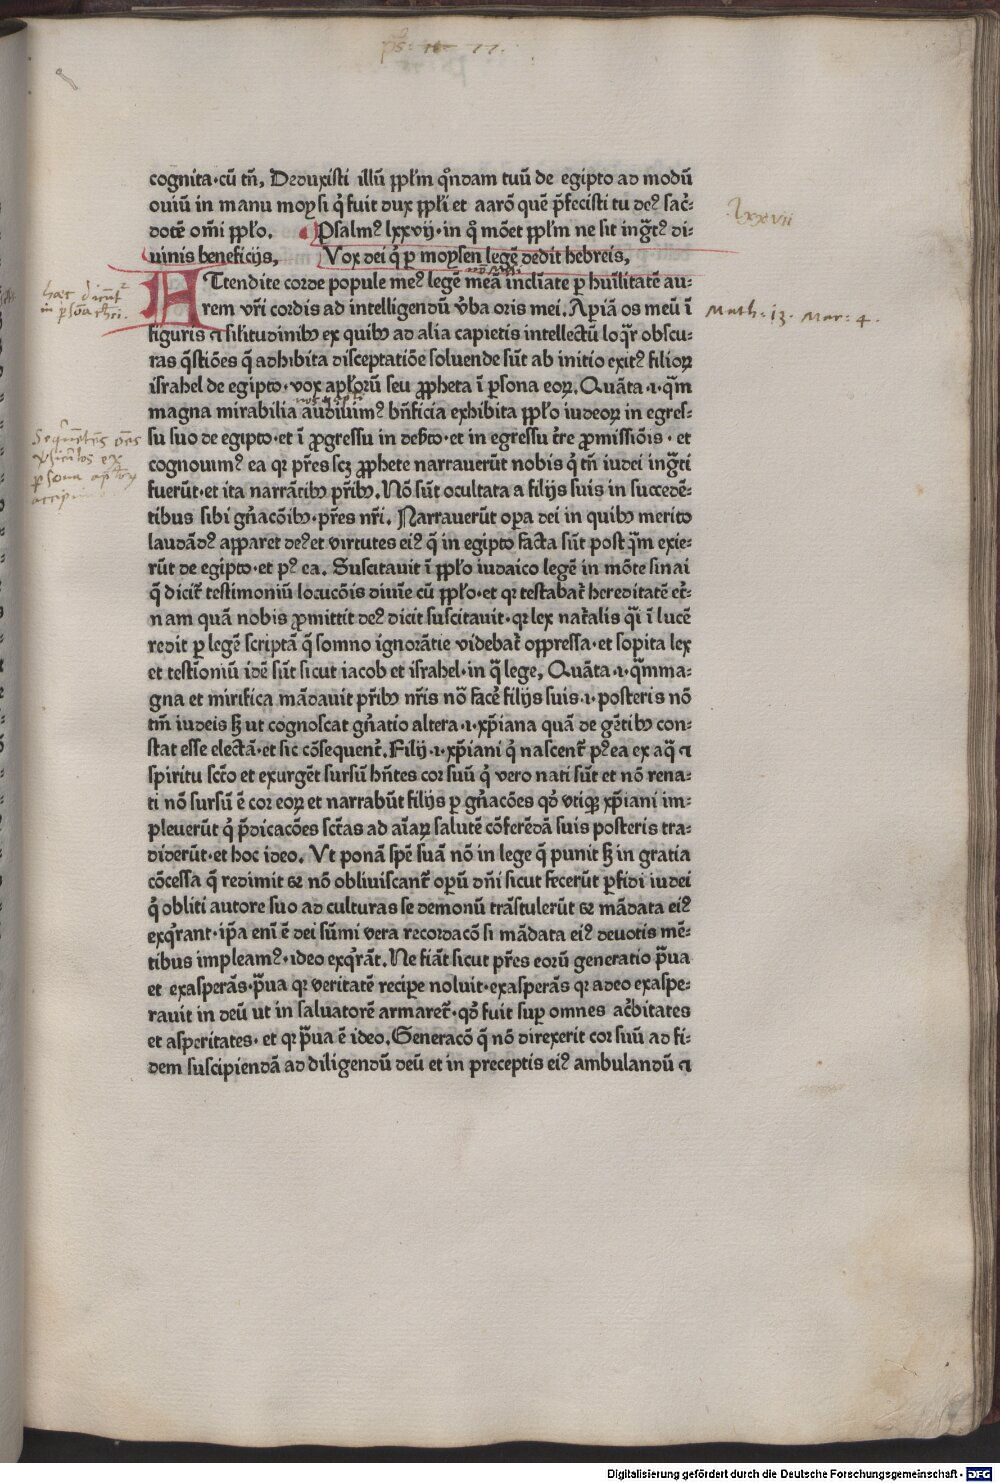 ps: 77.
cognita·cū tñ, Deduxisti illū ppl̄m qͦndam tuū de egipto ad modū
ouiū in manu moysi q̇ fuit dux ppl̄i et aarō quē p̄fecisti tu deꝰ sac̄-
dotē om̄i ppl̄o. Psalmꝰ lxxvij·in q̇ mōet ppl̄m ne sit ing̃tꝰ di-
uinis beneficijs, Vox dei q̇ ꝑ moysen legē dedit hebreis,
lxxvii
ATtendite corde popule meꝰ legē meā inclīate ꝑ hūilitatē au-
rem vr̄i cordis ad intelligendū v̄ba oris mei. Apiā os meū ī
Math: 13. Mar: 4.
figuris ⁊ silitudinibꝰ ex quibꝰ ad alia capietis intellectū loqr̄ obscu-
ras q̄stiōes q̄ adhibita disceptatiōe soluende sūt ab initio exitꝰ filioꝝ
israhel de egipto·vox apl̄orū seu ꝓpheta ī ꝑsona eoꝝ. Quāta·i·q̄m
magna mirabilia audiuimꝰ bn̄ficia exhibita ppl̄o iudeoꝝ in egres-
su suo de egipto·et ī ꝓgressu in deb̄to·et in egressu t̄re ꝓmissiōis·et
cognouimꝰ ea qꝛ pr̄es scꝫ ꝓphete narrauerūt nobis q̇ tñ iudei ing̃ti
fuerūt·et ita narrātibꝰ pr̄ibꝰ. Nō sūt ocultata a filijs suis in succedē-
tibus sibi gn̄acōibꝰ·pr̄es nr̄i. Narrauerūt oꝑa dei in quibꝰ merito
laudādꝰ apparet deꝰ et virtutes eiꝰ q̄ in egipto facta sūt post q̄m exie-
rūt de egipto·et pꝰ ea. Suscitauit ī ppl̄o iudaico legē in mōte sinai
q̄ dicit̄ testimoniū locucōis diuīe cū ppl̄o·et qꝛ testabat̄ hereditatē et̄-
nam quā nobis ꝓmittit deꝰ dicit suscitauit·qꝛ lex nat̄alis q̄i ī lucē
redit ꝑ legē scriptā q̄ somno ignorātie videbat̄ oppressa·et sopita lex
et testīoniū idē sūt sicut iacob et israhel·in q̄ lege, Quāta·i·q̄mma-
gna et mirifica mādauit pr̄ibꝰ nr̄is nō fac̄e filijs suis·i·posteris nō
tm̄ iudeis sꝫ ut cognoscat gn̄atio altera·i·xp̄iana quā de gētibꝰ con-
stat esse electā·et sic cōsequent̄. Filij·i·xp̄iani q̇ nascent̄ pꝰ ea ex aq̄ ⁊
spiritu sc̄to et exurgēt sursū hn̄tes cor suū q̇ vero nati sūt et nō rena-
ti nō sursū ē cor eoꝝ et narrabūt filijs ꝑ gn̄acōes qd̄ vtiqꝫ xp̄iani im-
pleuerūt q̇ p̄dicacōes sc̄tas ad aīaꝝ salutē cōferēdā suis posteris tra-
diderūt·et hoc ideo. Vt ponā spē suā nō in lege q̄ punit sꝫ in gratia
cōcessa q̄ redimit ⁊ nō obliuiscant̄ operū dn̄i sicut fecerūt ꝑfidi iudei
q̇ obliti autore suo ad culturas se demonū trāstulerūt ⁊ mādata eiꝰ
exq̇rant·ip̄a enī ē dei sūmi vera recordacō si mādata eiꝰ deuotis mē-
tibus impleamꝰ·ideo exq̇rāt. Ne fiāt sicut pr̄es eorū generatio p̄ua
et exasperās·p̄ua qꝛ veritatē recipe noluit·exasperās qꝛ adeo exaspe-
rauit in deū ut in saluatorē armaret̄·qd̄ fuit suꝑ omnes ac̄bitates
et asperitates·et qꝛ p̄ua ē ideo. Generacō q̄ nō direxerit cor suū ad fi-
dem suscipiendā ad diligendū deū et in preceptis eiꝰ ambulandū ⁊
Digitalisierung gefördert durch die Deutsche Forschungsgemeinschaft · DFG